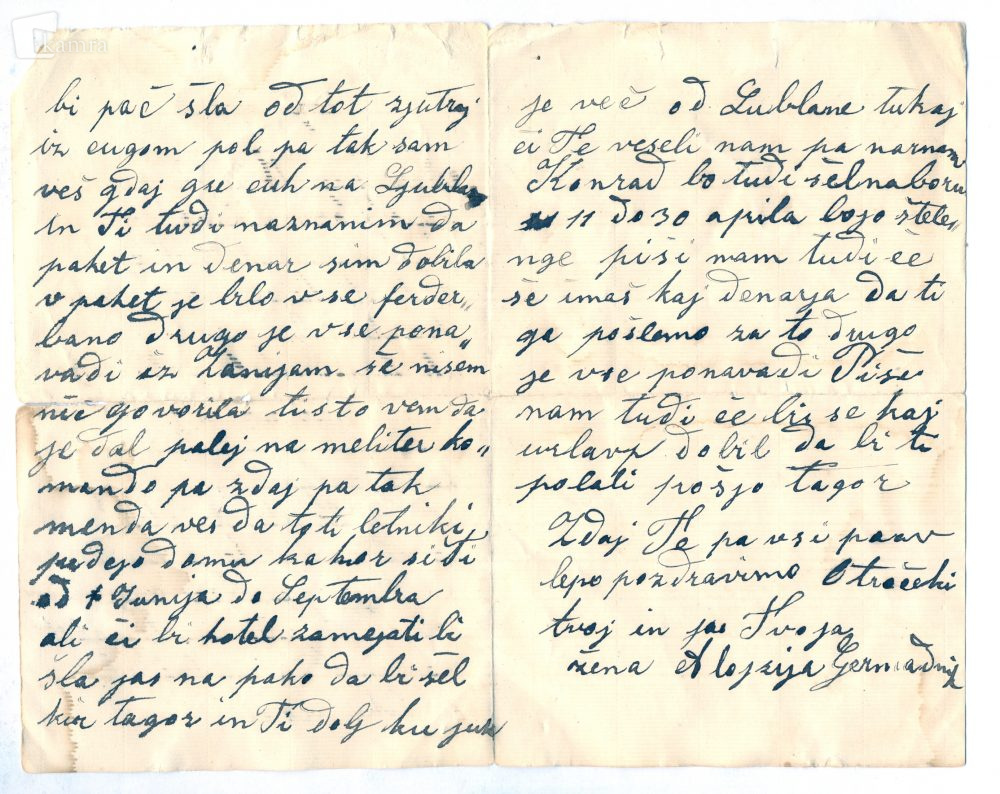 kamra
bi pač šla od tot zjutrej
iz cugom pol pa tak sam
veš gdaj gre cuh na Ljubla
in Ti tudi naznanim da
paket in denar sim dobila
v paket je blo vse ferder„
bano drugo je vse pona„
vadi iz Zanijam še nisem
nič govorila tisto vem da
je dal palej na meliter ko„
mando pa zdaj pa tak
menda ves da toti letniki
pridejo domu kakor si ti
od 1 Junija do Septembra
ali či bi hotel zamejati bi
šla jas na pako da bi šel
kir tagor in Ti dolj ku
je več od Lublane tukaj
či Te veseli nam pa naznam
Konrad bo tudi šel na boru
11 do 30 aprila bojo štele„
nge piši nam tudi če
še imaš kaj denarja da ti
ga pošlemo za to drugo
je vse ponavadi Piši
nam tudi če bi se kaj
urlavp dobil da bi ti
polati pošjo tagor
Zdaj Te pa vsi prav
lepo pozdravimo Otročeki
tvoj in jas Tvoja
žena Alojzija